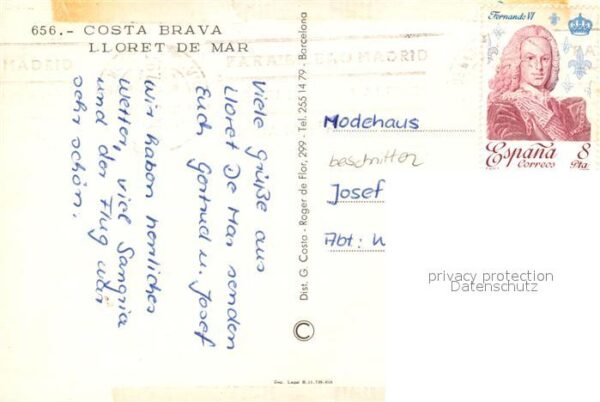 656.- COSTA BRAVA
LLORET DE MAR
Viele Grüße aus
Lloret De Mar senden
Euch Gertrud u. Josef
Wir haben herrliches
Wetter, viel Sangria
und der Flug war
sehr schön.
Dist. G. Costa - Roger de Flor, 299 - Tel. 255 14 79 - Barcelona
C
Fernando VI
España 8
Correos Pta.
Modehaus
beschnitten
Josef
Abt:
privacy protection
Datenschutz